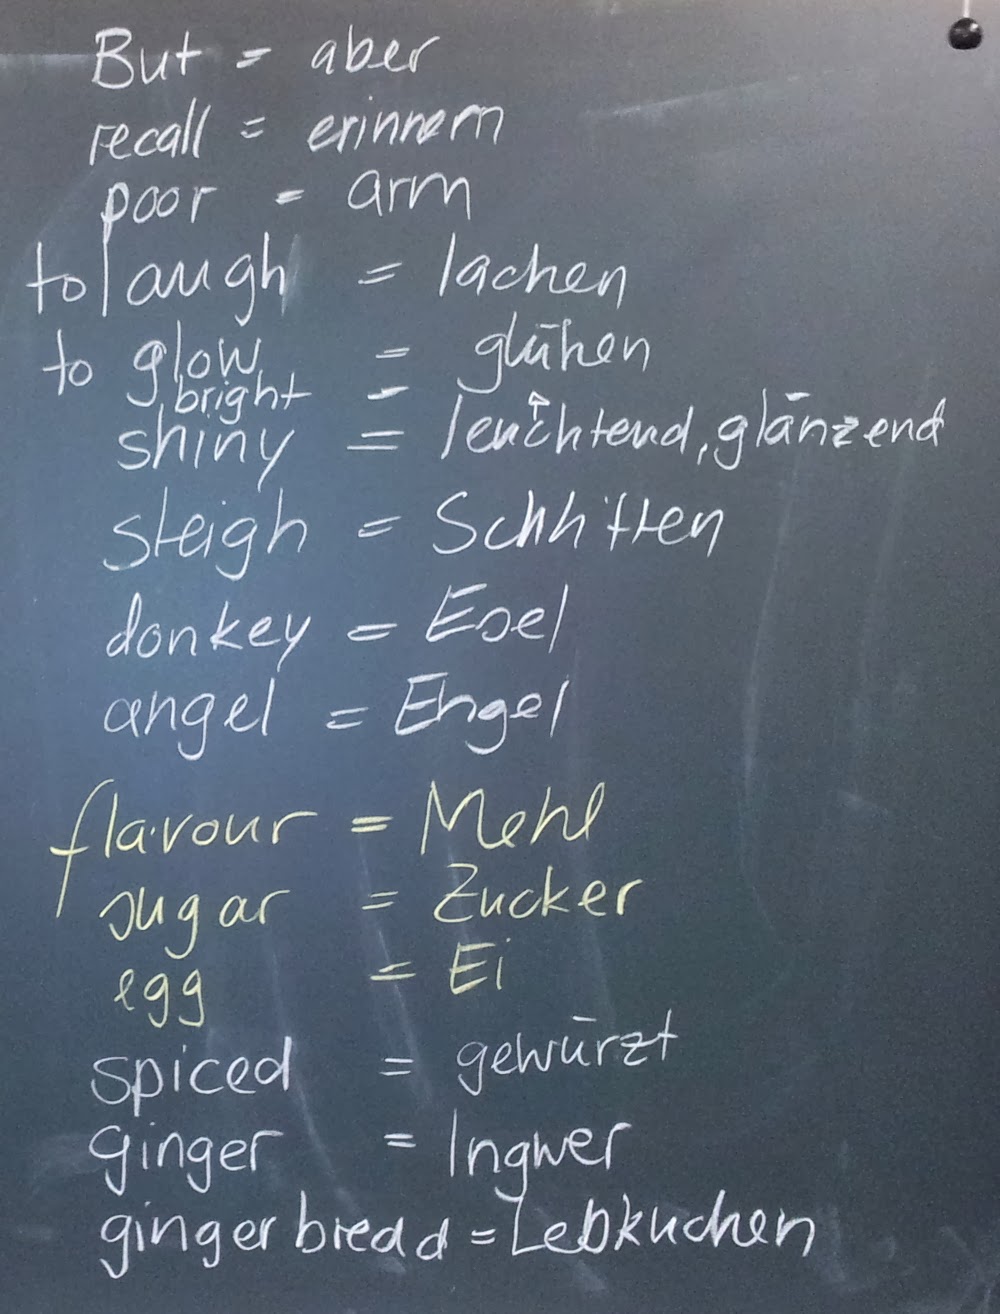 But = aber
recall = erinnern
poor = arm
to laugh = lachen
to glow = glühen
bright =
shiny = leuchtend, glänzend
sleigh = Schlitten
donkey = Esel
angel = Engel
flavour = Mehl
sugar = Zucker
egg = Ei
spiced = gewürzt
ginger = Ingwer
gingerbread = Lebkuchen